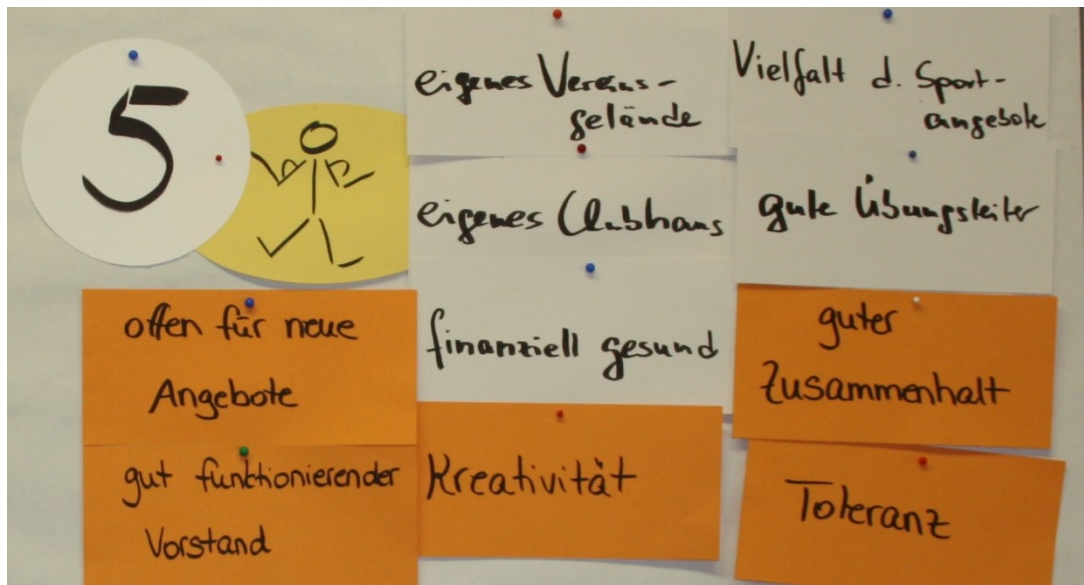 5
offen für neue
Angebote
gut funktionierender
Vorstand
eigenes Vereins-
gelände
eigenes Clubhaus
finanziell gesund
Kreativität
Vielfalt d. Sport-
angebote
gute Übungsleiter
guter
Zusammenhalt
Toleranz